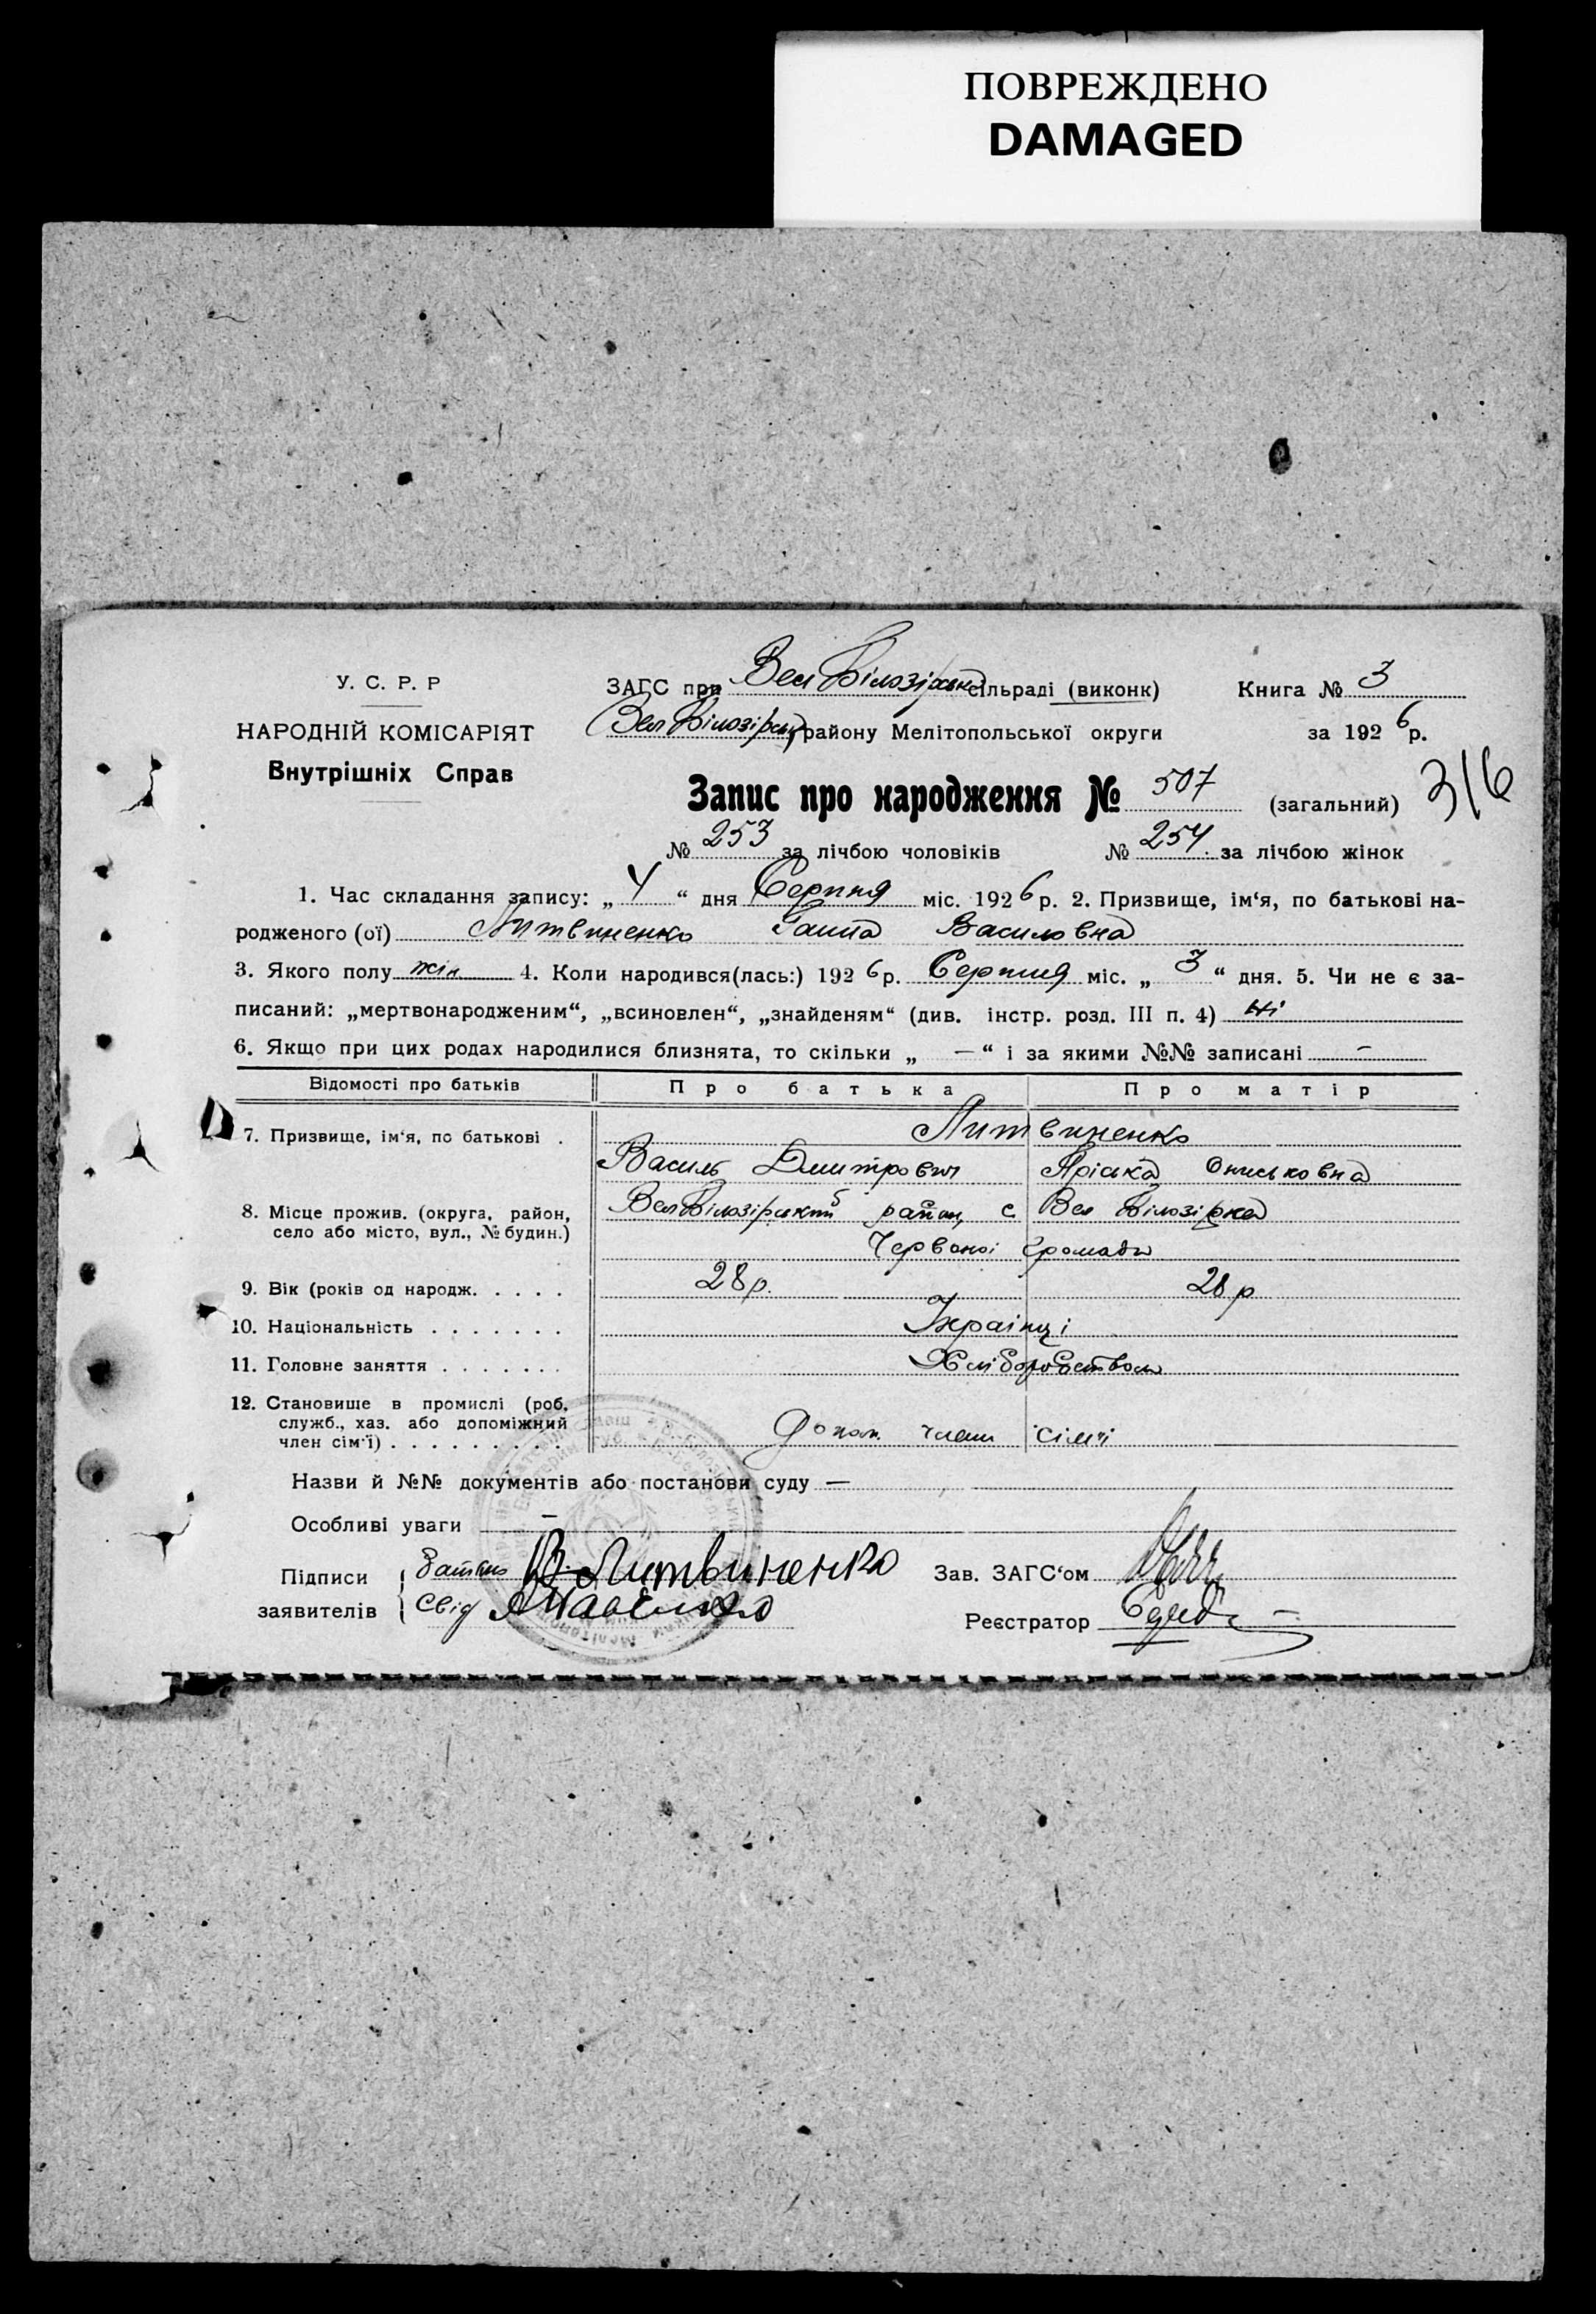 ПОВРЕЖДЕНО
DAMAGED
У. С. Р. Р
НАРОДНІЙ КОМІСАРІЯТ
Внутрішніх Справ
ЗАГС при Вел Білозірській сільраді (виконк)
(Вел Білозірськ) району Мелітопольської округи
Книга № 3
за 1926 р.
Запис про народження № 507 (загальний) 316
№ 253 за лічбою чоловіків № 254 за лічбою жінок
1. Час складання запису: „4“ дня Серпня міс. 1926 р. 2. Призвище, ім‘я, по батькові на-
родженого (ої) Литвиненко Ганна Василовна
3. Якого полу жін 4. Коли народився(лась:) 1926 р. Серпня міс. „3“ дня. 5. Чи не є за-
писаний: „мертвонародженим“, „всиновлен“, „знайденям“ (див. інстр. розд. III п. 4) ні
6. Якщо при цих родах народилися близнята, то скільки „ — “ і за якими №№ записані —
Відомості про батьків Про батька Про матір
7. Призвище, ім‘я, по батькові . Литвиненко
Василь Дмитрович Пріська Ониськовна
8. Місце прожив. (округа, район, село або місто, вул., № будин.) Вел Білозірський район, с Вел Білозірка
Червоної Громади
9. Вік (років од народж. . . . . 28 р. 28 р
10. Національність . . . . . . . Українці
11. Головне заняття . . . . . . . Хліборобством
12. Становище в промислі (роб, служб., хаз. або допоміжний член сім‘ї) . . . . . . . . . Допом. член сімʼї
Назви й №№ документів або постанови суду —
Особливі уваги —
Підписи заявителів
Батько В. Литвиненко
Свід
Зав. ЗАГС‘ом
Реєстратор